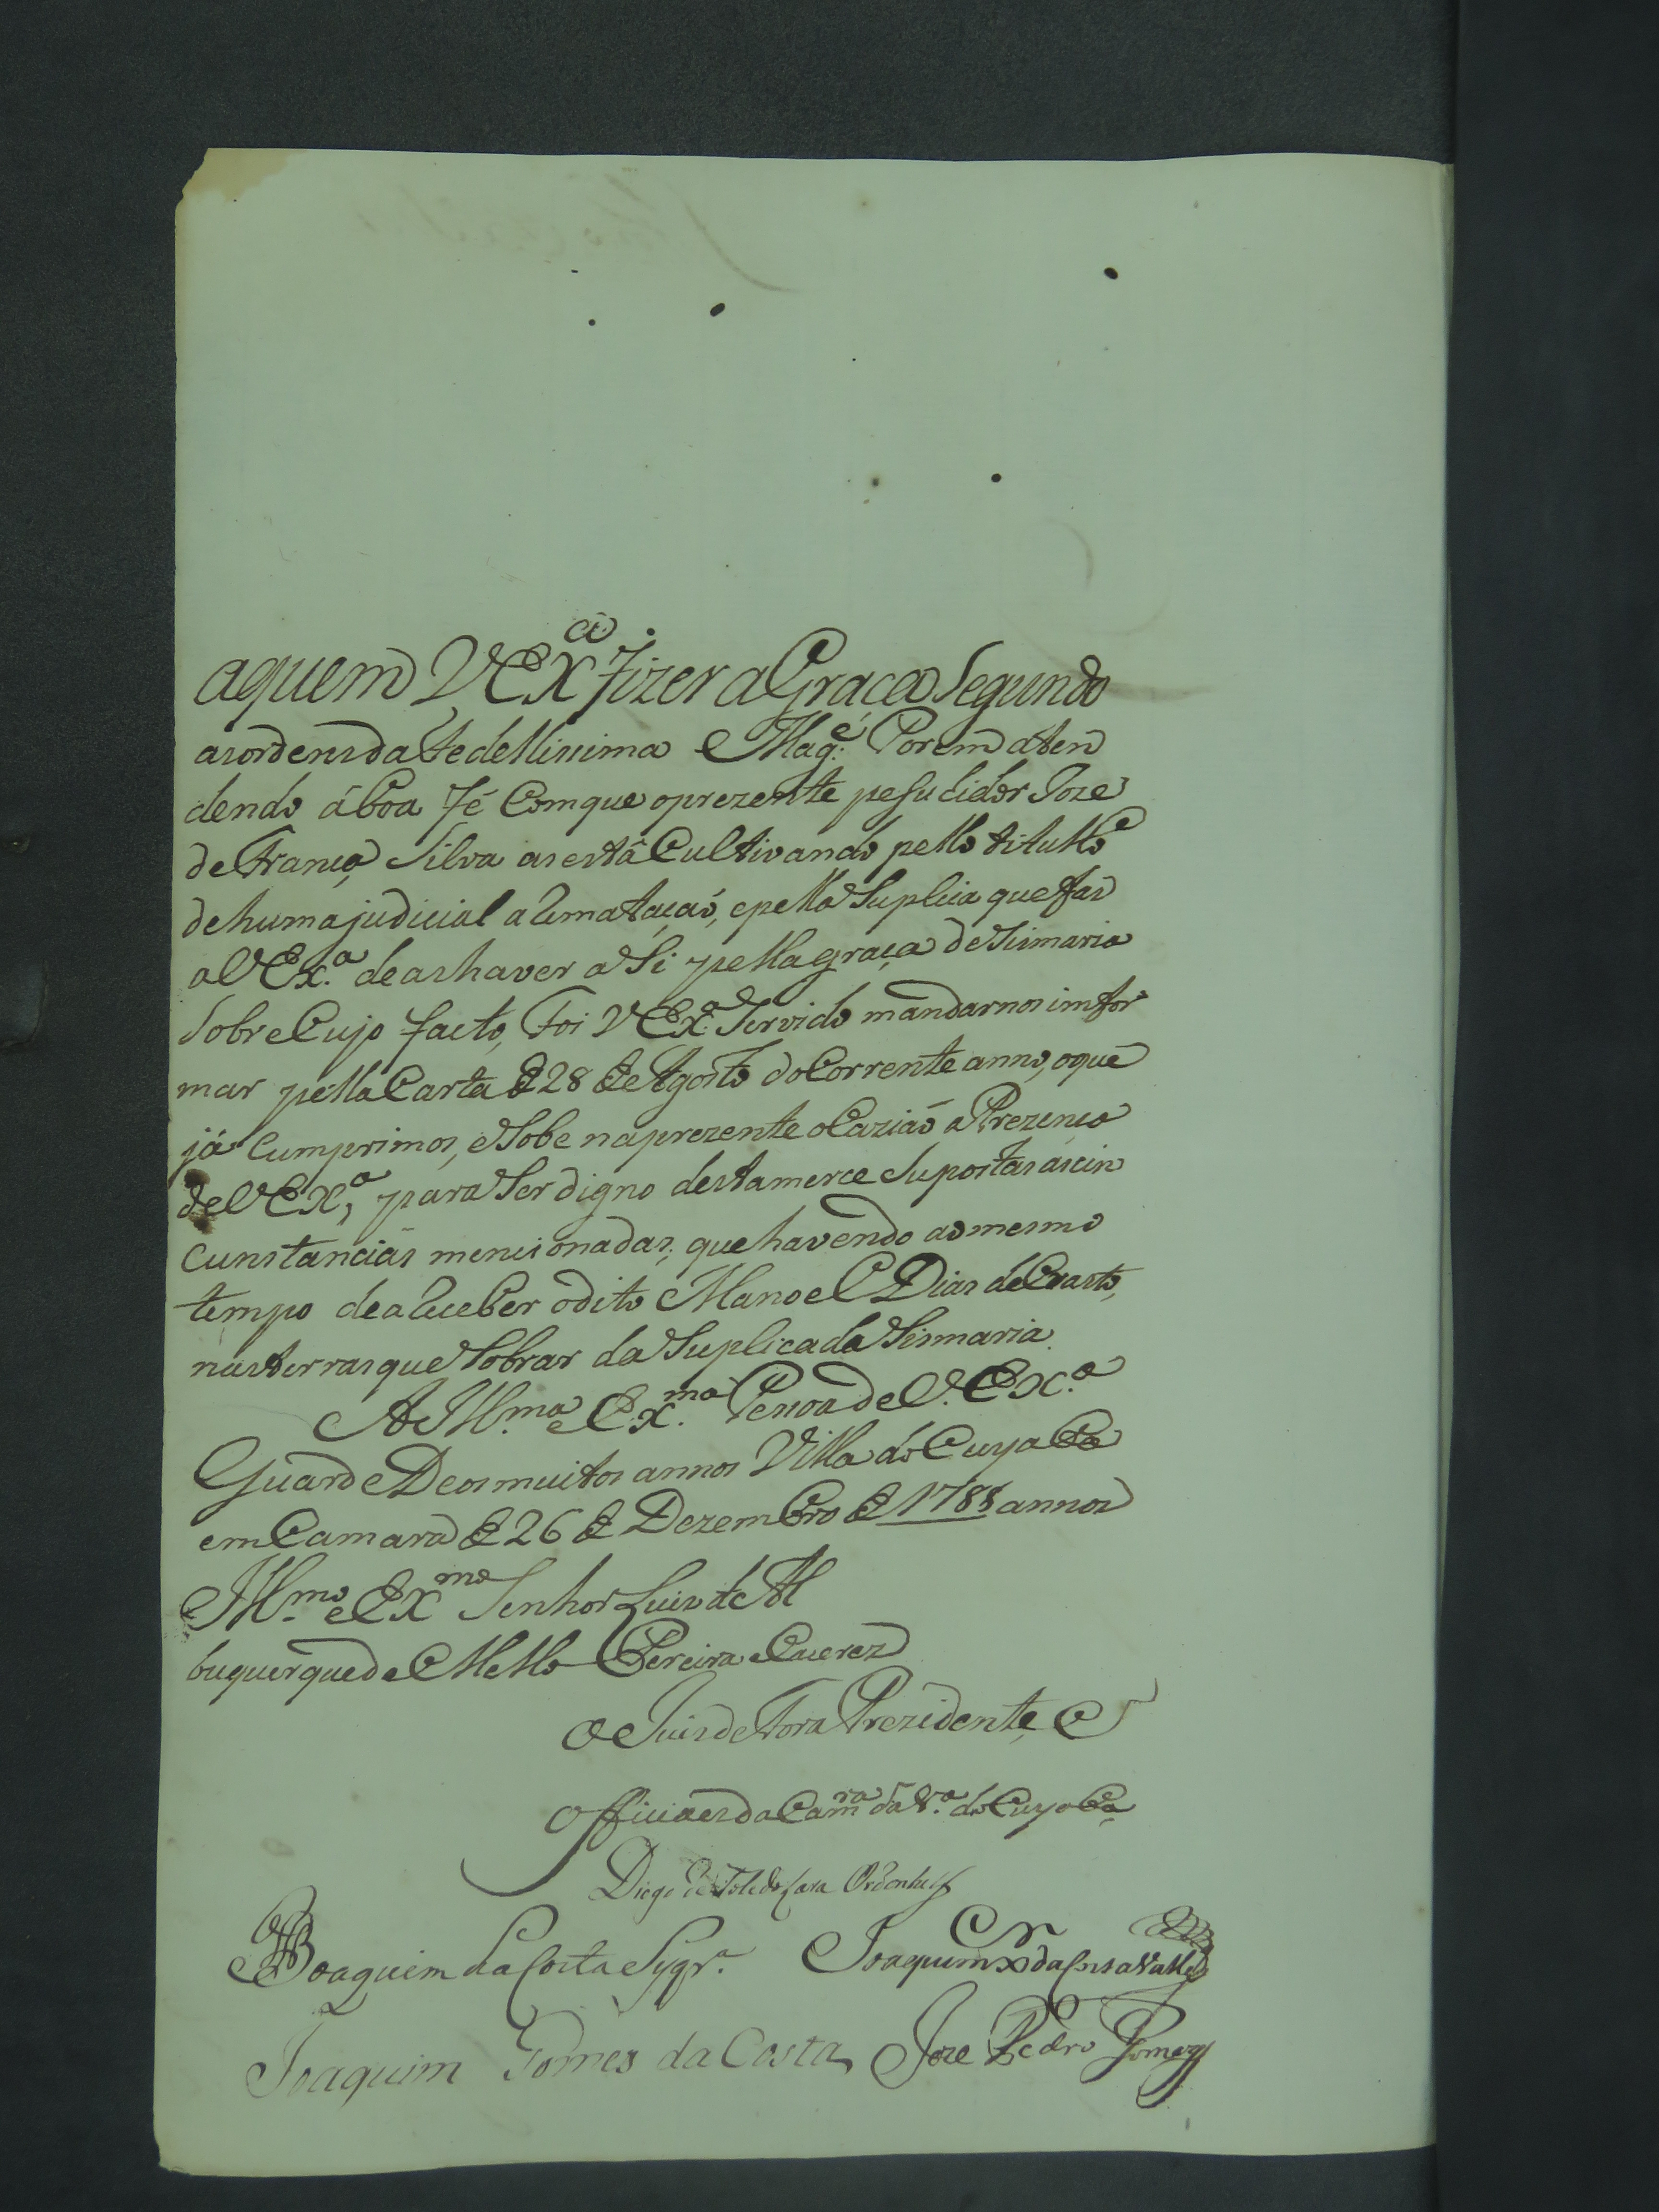 aquem V Ex.ª fizer a Graça Segundo
as ordens da Fedellissima Mag.é Porem aten
dendo á boa fé Com que o prezente pesuhidor Joze
de França Silva as está Cultivando pello titullo
de huma judicial aRematação, e pella Suplica que fas
a V Ex.ª de as haver a Si pella graça de Sismaria
Sobre Cujo facto, Foi V Ex.ª Servido mandarnos imfor
mar pella Carta de 28 de Agosto do Corrente anno, o que
já Cumprimos, e Sobe na prezente oCazião a Prezença
de V Ex.ª, para Ser digno desta merce Supostas as cir
cunstancias mencionadas; que havendo ao mesmo
tempo de aReceber o dito Manoel Dias de Crasto,
nas terras que Sobrar da Suplicada Sismaria.
A Ill.ma e Ex.ma Pesoa de V. Ex.ª
Guarde Deos muitos annos Villa do Cuyaba
em Camara de 26 de Dezembro de 1788 annos
Ill.mo e Ex.mo Senhor Luis de Al
buquerque de Mello Pereira e Caceres
O Juis de Fora Prezidente, e
Officiaes da Camra da V.ª do Cuyaba
Diogo de Toledo Lara Ordonhes
Joaquim da Costa Syqr.ª Joaquim da Costa Valle
Joaquim Gomes da Costa Joze Pedro Gomes